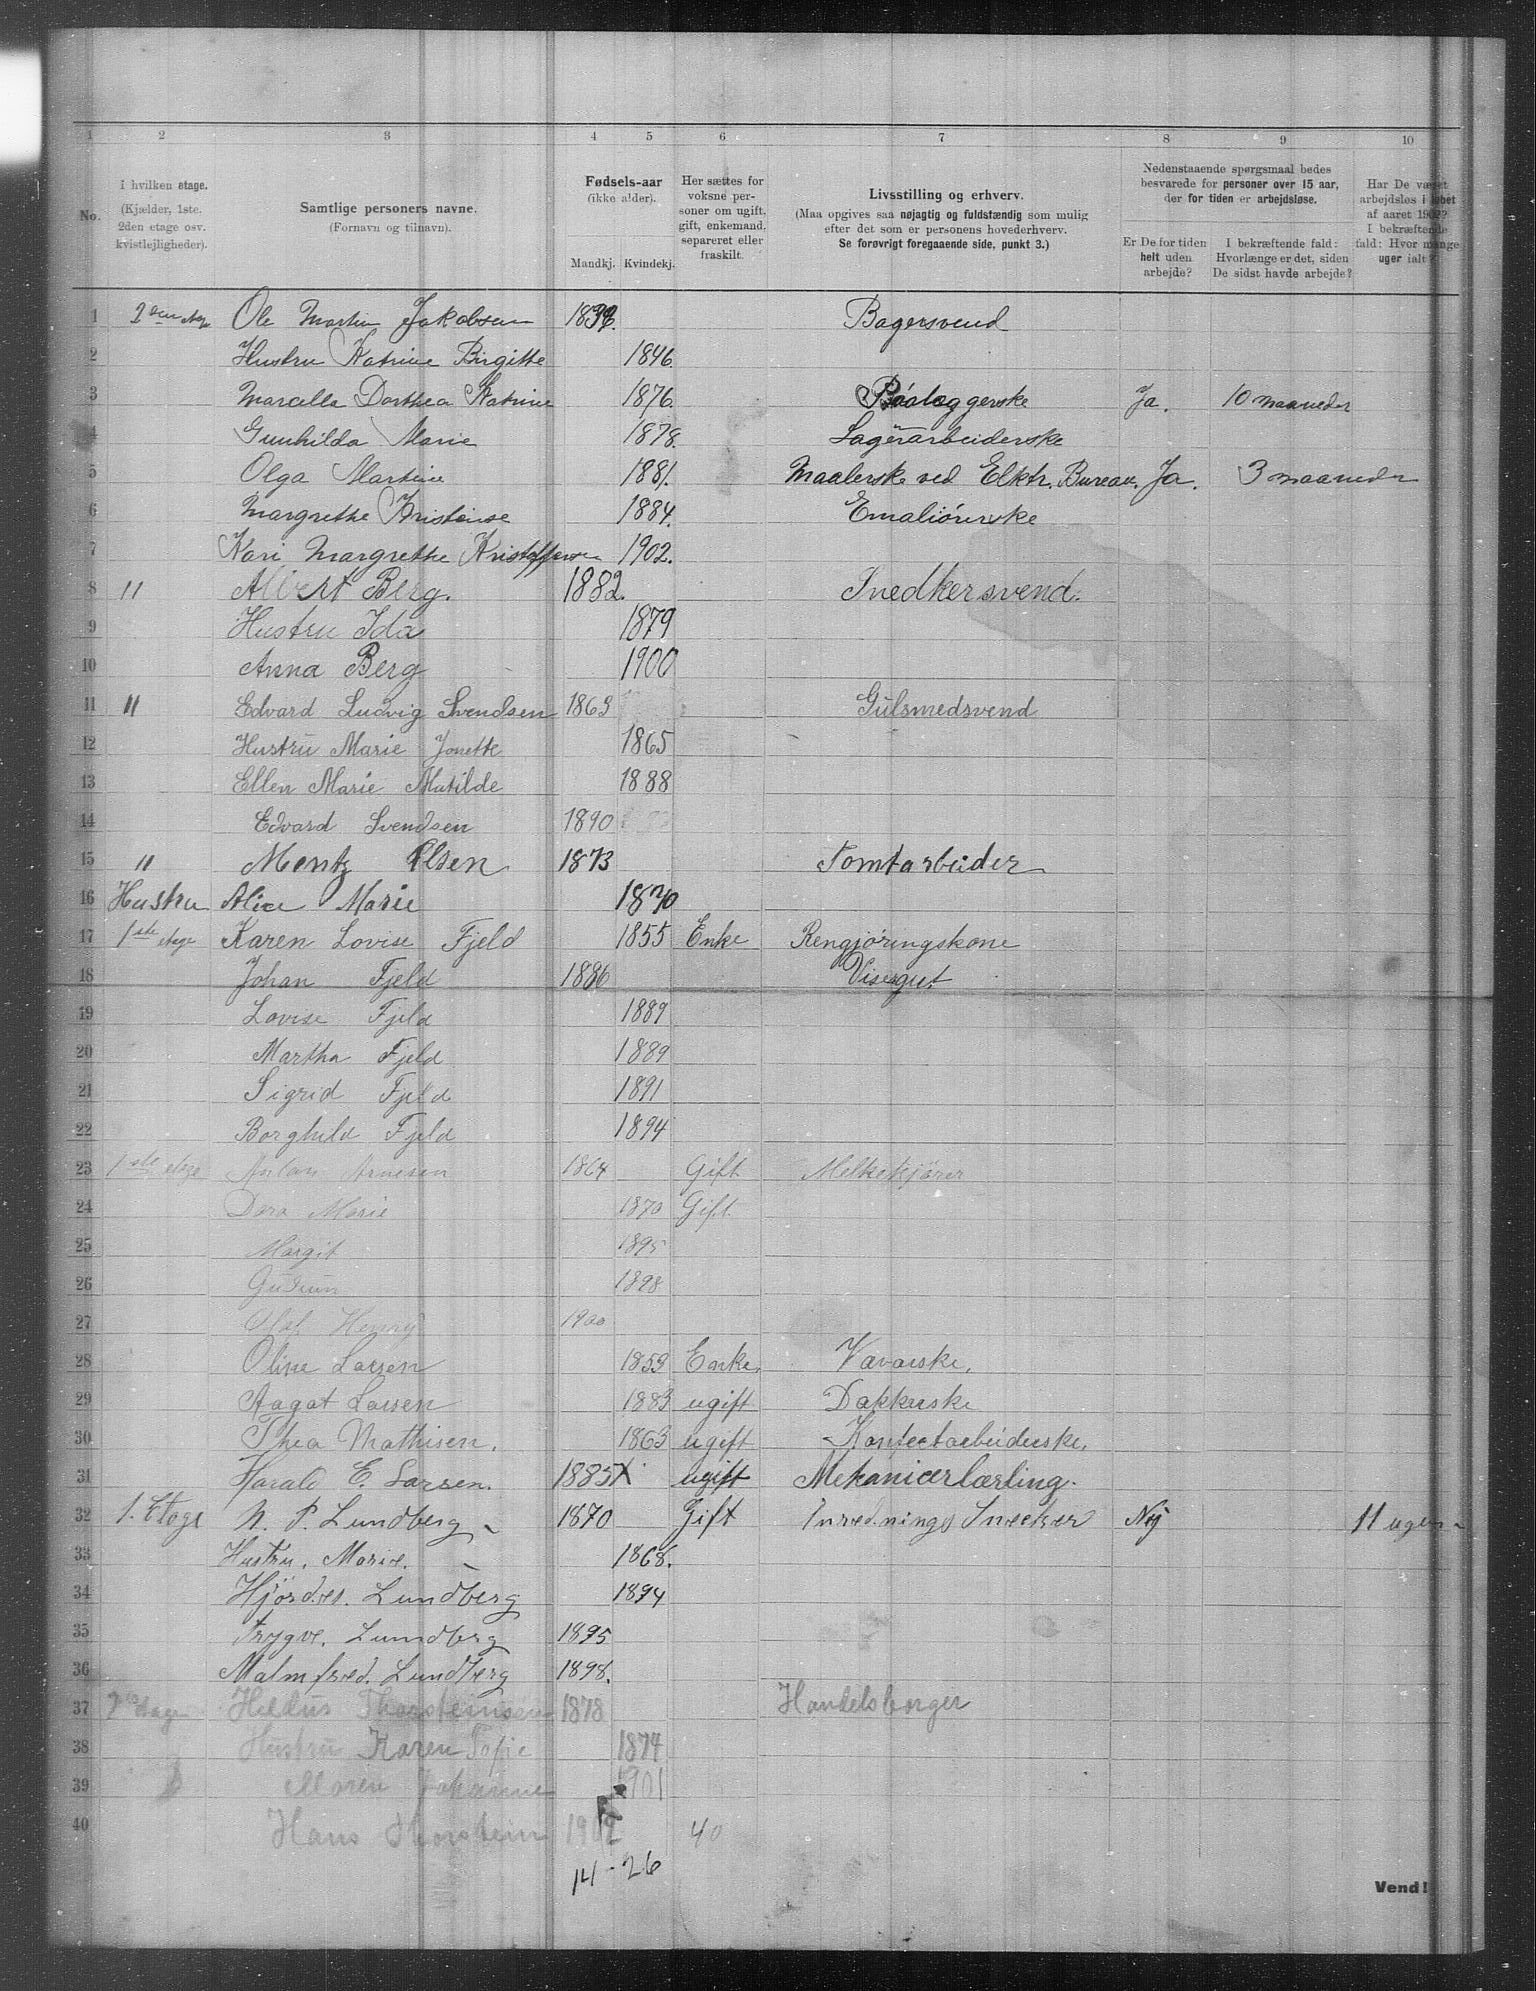 1 2 3 4 5 6 7 8 9 10
No.
I hvilken etage.
(Kjælder, 1ste.
2den etage osv.
kvistlejligheder).
Samtlige personers navne.
(Fornavn og tilnavn).
Fødsels-aar
(ikke alder).
Mandkj. Kvindekj.
Her sættes for
voksne per-
soner om ugift,
gift, enkemand,
separeret eller
fraskilt.
Livsstilling og erhverv.
(Maa opgives saa nøjagtig og fuldstændig som mulig
efter det som er personens hovederhverv.
Se forøvrigt foregaaende side, punkt 3.)
Nedenstaaende spørgsmaal bedes
besvarede for personer over 15 aar,
der for tiden er arbejdsløse.
Er De for tiden
helt uden
arbejde?
I bekræftende fald:
Hvorlænge er det, siden
De sidst havde arbejde?
Har De været
arbejdsløs i løbet
af aaret 1902?
I bekræftende
fald: Hvor mange
uger ialt?
1 2den etage Ole Martin Jakobsen Bagersvend
2 Hustru Katrine Birgitte 1846.
3 Marcella Dorthea Katrine 1876. Ja. 10 maaneder
4 Gunhilda Marie 1878. Lagerarbeiderske
5 Olga Martine 1881. Maalerske ved Elktr. Bureau. Ja. 3 maaneder
6 Margrethe Kristense 1884. Emaliörerske
7 Kari Margrethe Kristoffersen 1902.
8 " Albert Berg. 1882. Snedkersvend.
9 Hustru Ida 1879
10 Anna Berg 1900
11 " Edvard Ludvig Svendsen 1863 Gulsmedsvend
12 Hustru Marie Jonette 1865
13 Ellen Marie Matilde 1888
14 Edvard Svendsen 1890
15 " Mentz Olsen 1873 Tomtarbeider
16 Hustru Alice Marie 1870
17 1ste etage Karen Lovise Fjeld 1855 Enke Rengjøringskone
18 Johan Fjeld 1886 Visergut
19 Lovise Fjeld 1889
20 Martha Fjeld 1889
21 Sigrid Fjeld 1891
22 Borghild Fjeld 1894
23 1ste etage Anton Arnesen 1864 Gift Melkekjører
24 Dora Marie 1870 Gift
25 Margit 1895
26 Gudrun 1898
27 Olaf Henry 1900
28 Oline Larsen 1853 Enke. Væverske.
29 Aagot Larsen 1883 ugift Dakkerske
30 Thea Mathisen. 1863 ugift Konfectarbeiderske.
31 Harald E. Larsen. 1885 X ugift Mekanicerlærling.
32 1. Etage N. P. Lundberg 1870 Gift Inrednings Snecker Nej 11 uger
33 Hustru. Marie. 1868.
34 Hjördis. Lundberg 1894
35 Trygve. Lundberg 1895
36 Malmfred. Lundberg 1898.
37 2den etage Heldus Thorsteinsen 1878 Handelsborger
38 Hustru Karen Sofie 1874
39 Maren Johanne 1901
40 Hans Thorstein 1902 40
14 - 26
Vend!